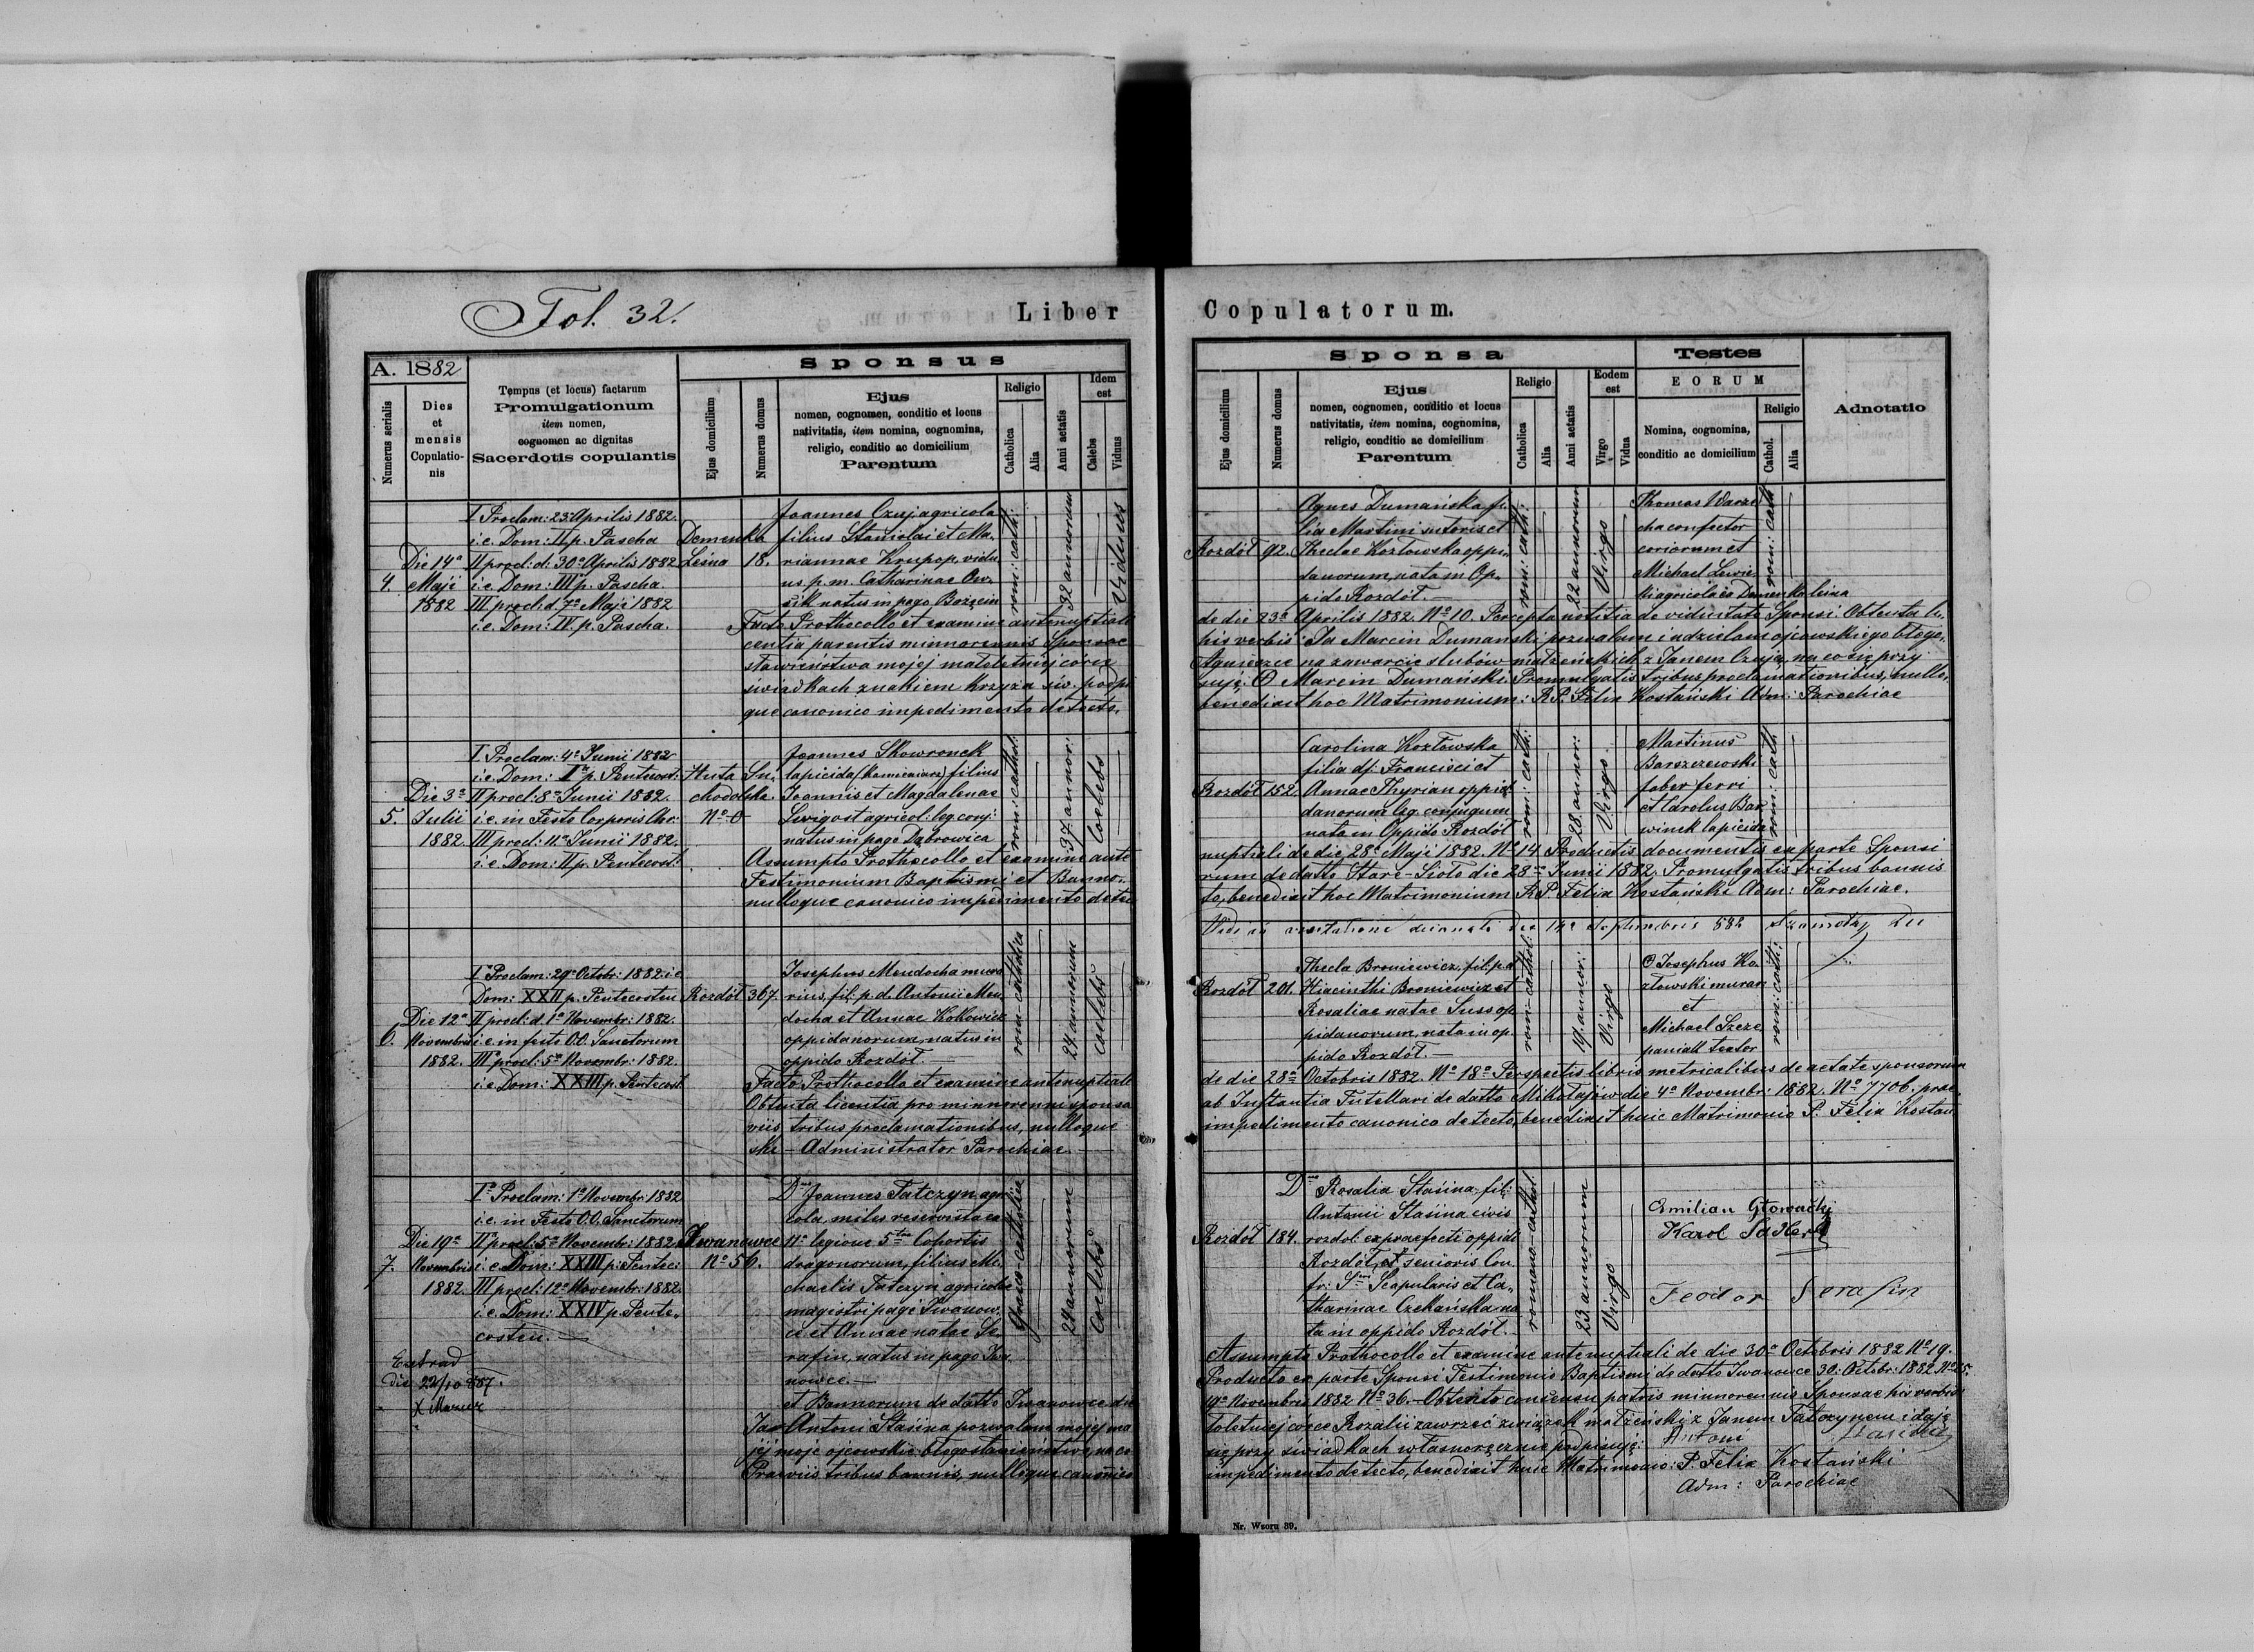 Fol. 32.
Liber Copulatorum.
A. 1882
Numerus serialis
Dies
et
mensis
Copulatio-
nis
Tempus (et locus) factarum
Promulgationum
item nomen,
cognomen ac dignitas
Sacerdotis copulantis
Sponsus
Ejus domicilium
Numerus domus
Ejus
nomen, cognomen, conditio et locus
nativitatis, item nomina, cognomina,
religio, conditio ac domicilium
Parentum
Religio
Catholica
Alia
Anni aetatis
Idem
est
Caelebs
Viduus
Sponsa
Ejus domicilium
Numerus domus
Ejus
nomen, cognomen, conditio et locus
nativitatis, item nomina, cognomina,
religio, conditio ac domicilium
Parentum
Religio
Catholica
Alia
Anni aetatis
Eodem
est
Virgo
Vidua
Testes
EORUM
Nomina, cognomina,
conditio ac domicilium
Religio
Cathol.
Alia
Adnotatio
4.
Die 14a
Maji
1882
I Proclam: 23a Aprilis 1882.
i.e. Dom: II p. Pascha
II procl: d: 30a Aprilis 1882
i.e. Dom: III p. Pascha.
III procl. d. 7a Maji 1882
i.e. Dom: IV. p. Pascha.
Demenka
Leśna
18.
Joannes Czuj agricola
filius Stanislai et Ma-
riannae Krupop. vidu-
us. p. m. Catharinae
natus in pago
rom: cath:
32 annorum
Viduus
Rozdół
92.
Agnes Dumańska, fi-
lia Martini sutoris et
Theclae Kozłowska oppi-
danorum, nata in Op-
pido Rozdół.
rom: cath:
22 annorum
Virgo
Thomas
cha confector
coriorum et
Michael
agricola ex Demenka leśna
rom: cath
Facto Prothocollo et examine antenuptiali de die 23a Aprilis 1882. No 10. Percepta notitia de viduitate Sponsi. Obtenta li-
centia parentis minnorennis Sponsae his verbis: Ja Marcin Dumanski pozwalam i udzielam ojcowskiego błogo-
sławieństwa mojej małoletniej córce Agnieszce na zawarcie slubów małżeńskich z Janem Czują, na co się przy
świadkach znakiem krzyża św. podpi- suję. Marcin Dumański. Promulgatis tribus proclamationibus, nullo-
que canonico impedimento detecto, benedixit hoc Matrimonium: R.P. Felix Kostański Adm: Parochiae
5.
Die 3a
Julii
1882.
I Proclam: 4a Junii 1882
i.e. Dom: I p. Pentecost:
II procl: 8a Junii 1882.
i.e. in Festo Corporis Chr:
III procl: 11a Junii 1882.
i.e. Dom: II p. Pentecost:
Huta Su-
chodolska.
No 0
Joannes Skowronek
lapicida (kamieniarz) filius
Joannis et Magdalenae
agricol: leg. conj:
natus in pago Dąbrowica
rom: cathol:
37 annor:
Coelebs
Rozdół
152.
Carolina Kozłowska
filia df: Francisci et
Annae Thyrian oppi-
danorum leg. conjugum
nata in Oppido Rozdół
rom: cath:
28. annor:
Virgo.
Martinus
Barszczewski
faber ferri
et Carolus Bar-
winek lapicida
rom: cath
Assumpto Prothocollo et examine ante nuptiali de die 28a Maji 1882. No 14. Productis documentis ex parte Sponsi
Testimonium Baptismi et Banno- rum de datto Stare-Sioło die 28 Junii 1882. Promulgatis tribus bannis
nulloque canonico impedimento detec- to, benedixit hoc Matrimonium R.P. Felix Kostański Adm: Parochiae.
Vidi in visitatione decanali die 14a Septembris 882
6.
Die 12a
Novembris
1882.
Ia Proclam: 29a Octobr: 1882. i.e
Dom: XXII p. Pentecosten
II procl: d. 1a Novembr: 1882.
i.e. in festo O.O. Sanctorum
III procl: 5a Novembr: 1882.
i.e Dom: XXIII p. Pentecost
Rozdół
367.
Josephus Mendocha mura-
rius, fil: p. d. Antonii Men-
docha et Annae
oppidanorum, natus in
oppido Rozdół
rom: catholica
24 annorum
Coelebs
Rozdół
201.
Thecla Broniewicz, fil: p. d
Hiacinthi Broniewicz et
Rosaliae natae Suss op-
pidanorum, nata in op-
pido Rozdół.
rom: cathol:
19. annor:
Virgo
Josephus Ko-
złowski murar.
et
Michael Szcze-
paniak textor
rom: cath:
Facto Prothocollo et examine antenuptiali de die 28a Octobris 1882. No 18o Perspectis libris metricalibus de aetate sponsorum
Obtenta licentia pro minnorenni sponsa ab Instantia Tutellari de datto Mikołajów die 4a Novembr: 1882. No 7706. prae-
viis tribus proclamationibus, nulloque impedimento canonico detecto, benedixit huic Matrimonio P. Felix Kostań-
ski - Administrator Parochiae.
7.
Die 19a
Novembris
1882.
Ia Proclam: 1a Novembr: 1882
i.e. in Festo O.O. Sanctorum
IIa procl: 5a Novembr: 1882
i.e. Dom: XXIII p. Pentec:
III procl: 12a Novembr: 1882.
i.e. Dom: XXIV p. Pente-
costen.
Iwanowce
No 56.
Joannes Tatczyn agri-
cola, miles reservista ex
11a legione 5tae Cohortis
dragonorum, filius Mi-
chaelis Tatczyn agricolae
magistri pagi Iwanow-
ce et Annae natae Se-
rafin, natus in pago Iwa-
nowce.
Graeco-catholica
24 annorum
Coelebs
Rozdół
184.
Rosalia Stasina, fil:
Antonii Stasina civis
rozdol. ex praefecti oppidi
Rozdół, et senioris Con-
fr: Scapularis et Ca-
tharinae Czekańska na-
ta in oppido Rozdół.
romano-cathol.
23 annorum
Virgo
Emilian Głowacki
Karol
Feodor Serafin
Extrad
die 22/10 887.
X Mazur
Assumpto Prothocollo et examine ante nuptiali de die 30a Octobris 1882 No 19.
Producto ex parte Sponsi Testimonio Baptismi de datto Iwanowce 30. Octobr: 1882 No 25.
et Bannorum de datto Iwanowce die 19a Novembris 1882 No 36. Obtento consensu patris minnorennis Sponsae his verbis
Ja Antoni Stasina pozwalam mojej ma- łoletniej córce Rozalii zawrzeć związek małżeński z Janem Tatczynem i daję
jej moje ojcowskie błogosławieństwo, na co się przy świadkach własnoręcznie podpisuję: Antoni Stasina
Praeviis tribus bannis, nulloque canonico impedimento detecto, benedixit huic Matrimonio: P. Felix Kostański
Adm: Parochiae
Nr. Wzoru 39.